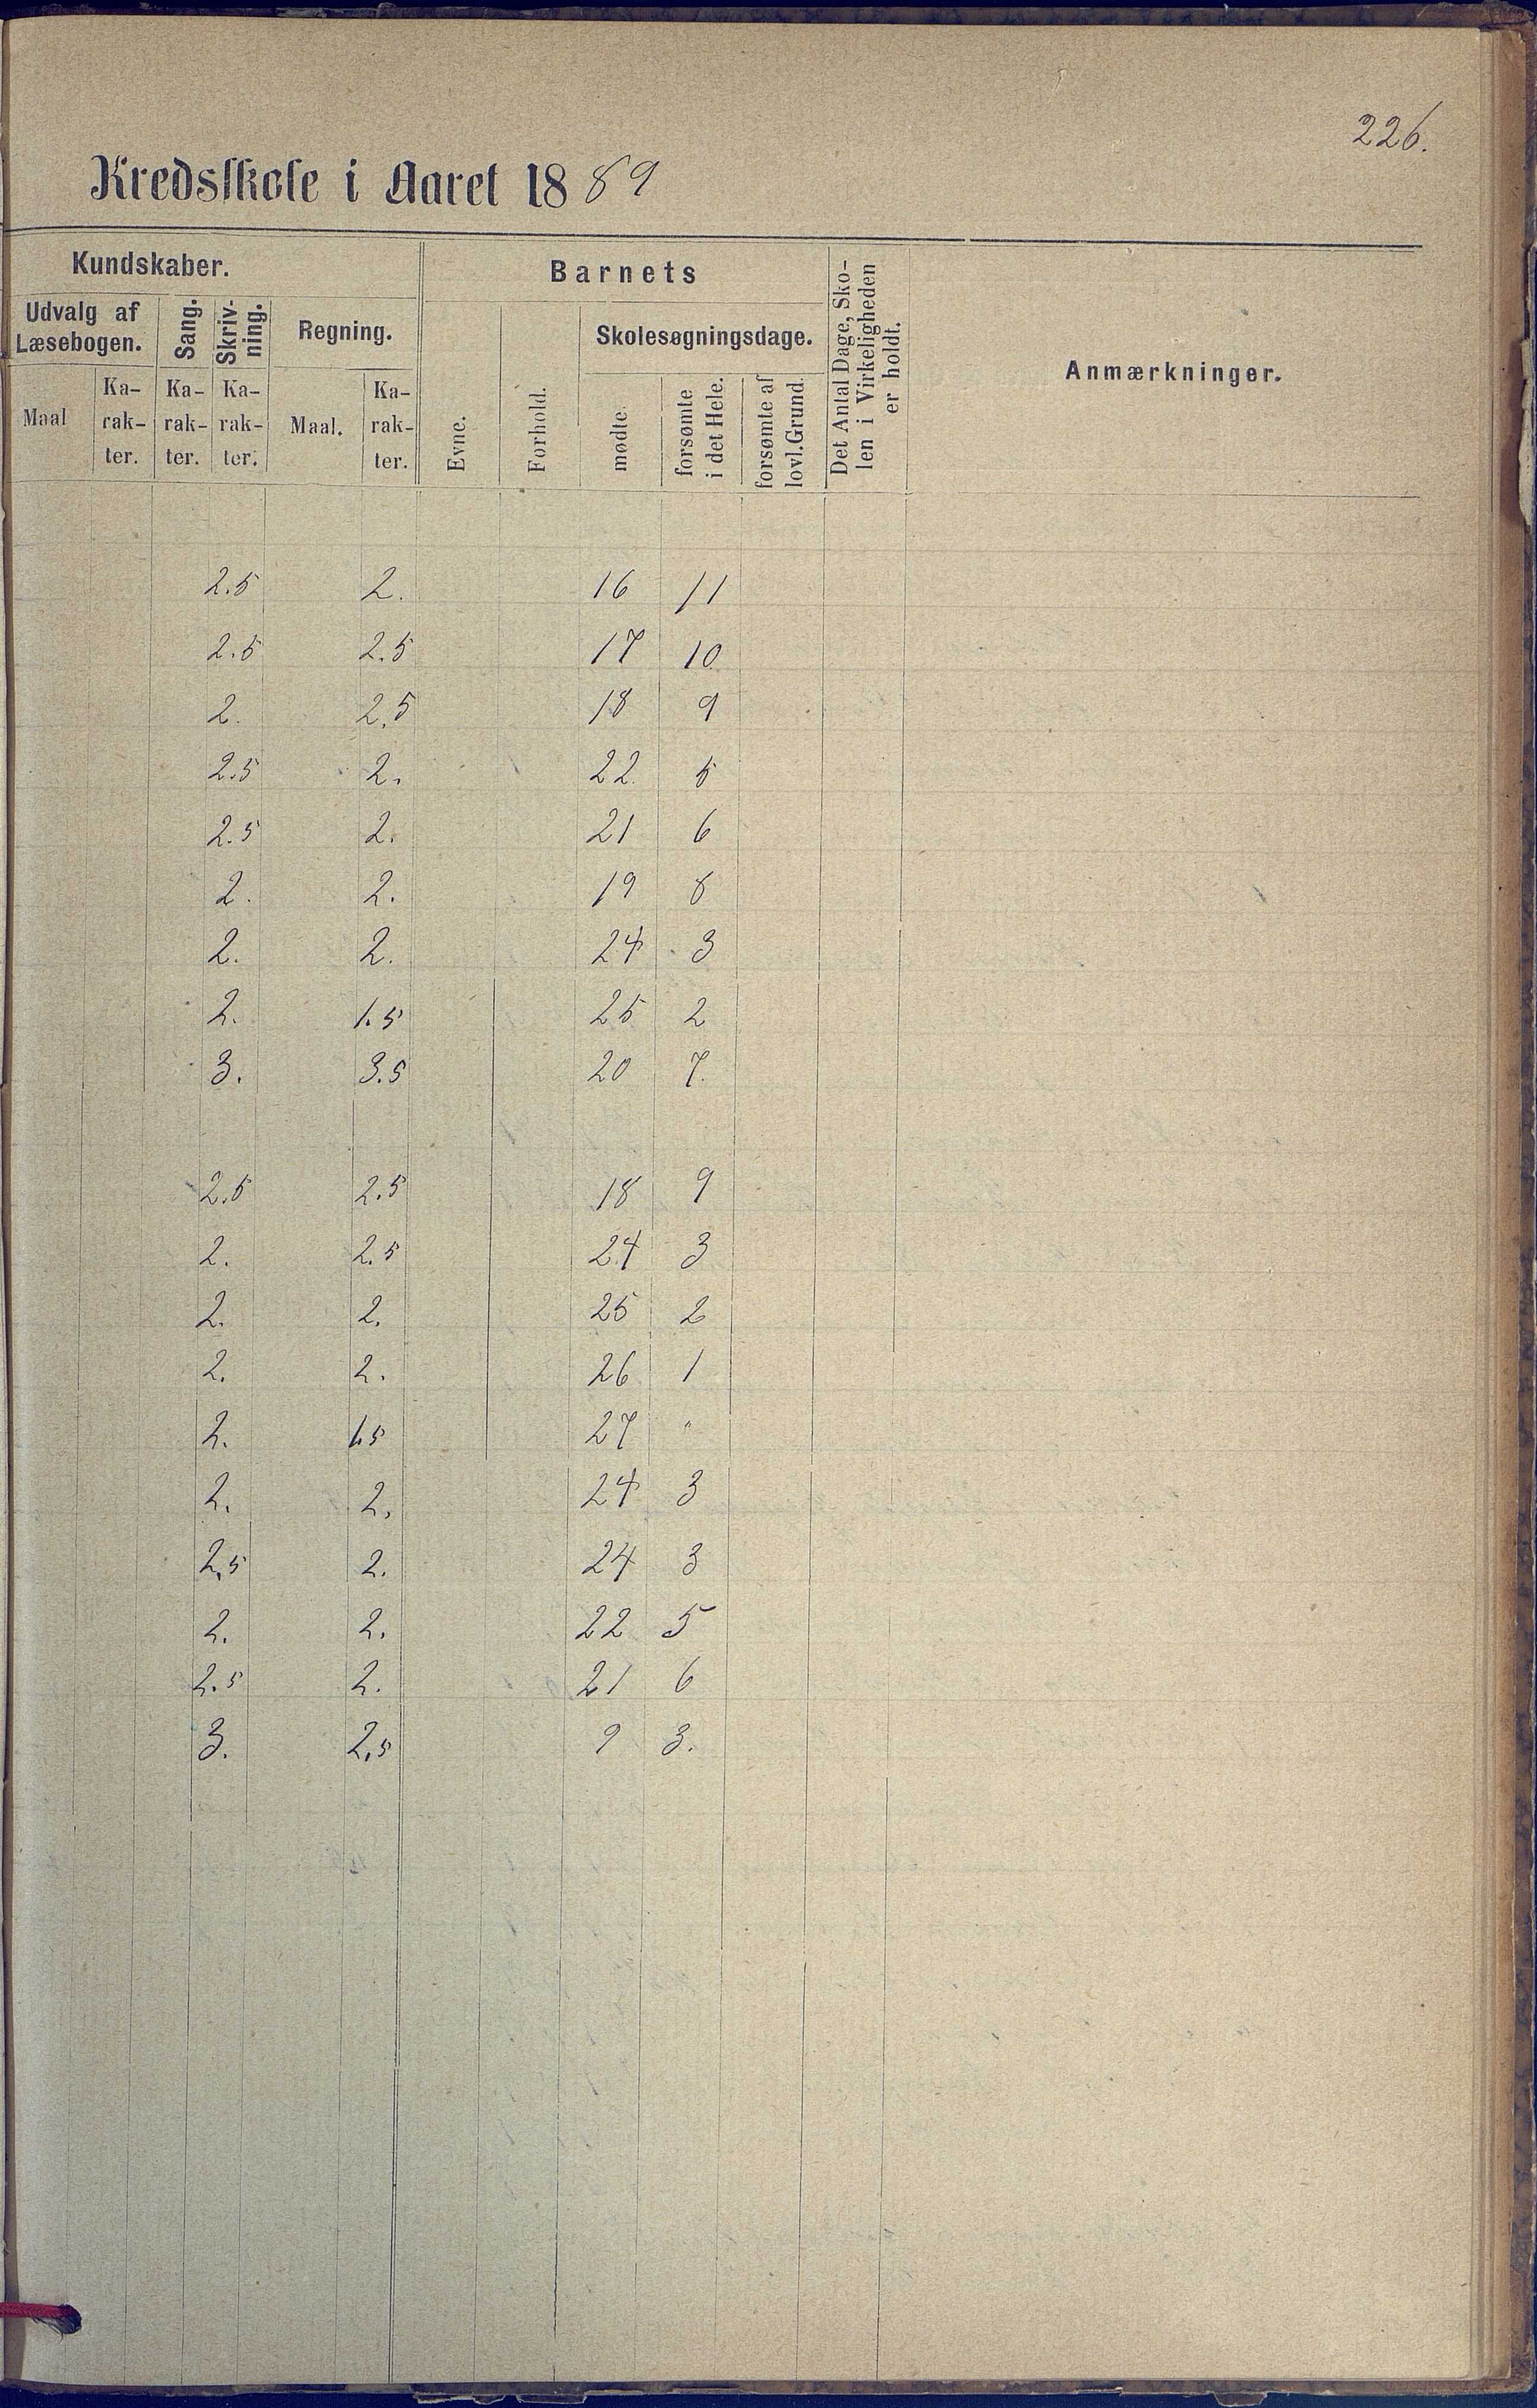 226.
Kredsskole i Aaret 1889
Kundskaber.
Barnets
Det Antal Dage, Sko-
len i Virkeligheden
er holdt.
Anmærkninger.
Udvalg af
Læsebogen.
Sang.
Skriv-
ning.
Regning.
Evne.
Forhold.
Skolesøgningsdage.
Maal
Ka-
rak-
ter.
Ka-
rak-
ter.
Ka-
rak-
ter.
Maal.
Ka-
rak-
ter.
mødte.
forsømte
i det Hele.
forsømte af
lovl. Grund.
2.5 2. 16 11
2.5 2.5 17 10
2. 2.5 18 9
2.5 2. 22. 5
2.5 2. 21 6
2. 2. 19 8
2. 2. 24 3
2. 1.5 25 2
3. 3.5 20 7.
2.5 2.5 18 9
2. 2.5 24 3
2. 2. 25 2
2. 2. 26 1
2. 1.5 27 "
2. 2. 24 3
2.5 2. 24 3
2. 2. 22 5
2.5 2. 21 6
3. 2.5 9 3.